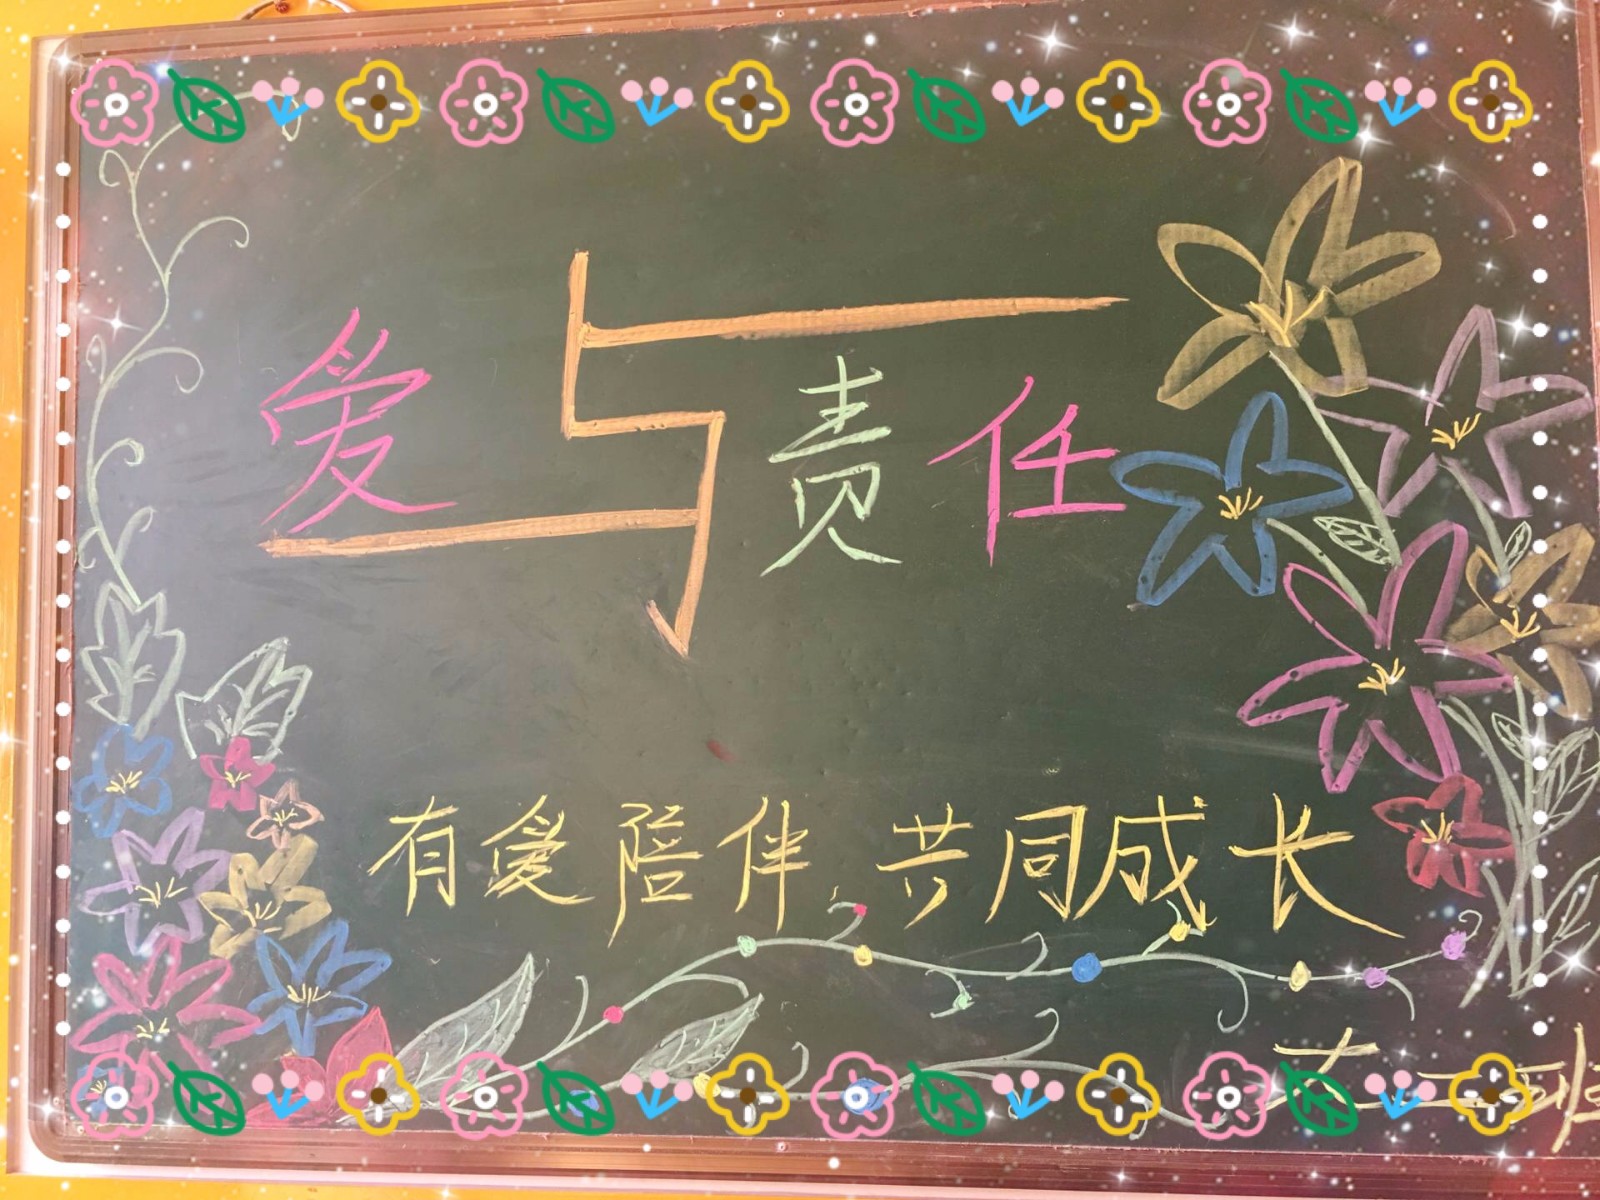 爱与责任
有爱陪伴 共同成长